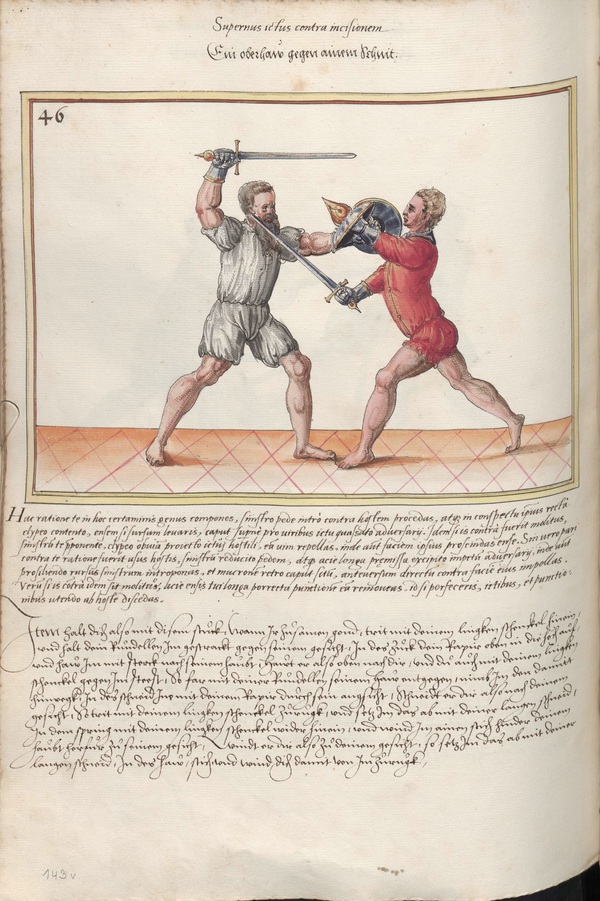 Supernus ictus contra incisionem
Ein oberhaw gegen ainem Schnit.
46
Hac ratione te in hoc certaminis genus compones, sinistro pede intrò contra hostem procedas, atque in conspectu ipsius rectà
clypeo contento, ensem si sursum levaris, caput supernè pro viribus ictu quassato adversarij. Idem si is contrà fuerit molitus,
sinistrū te pponente, clypeo obuia proiecto ictui hostili, eū vim repellas. inde aut faciem ipsius proscindas ense. Sin vero pari
contra te ratione fuerit usus hostis, sinistrū reducito pedem, atque acie longa premissa excipito impetū adversarij, inde aūt
prosiliendo rursus sinistrum intro ponas, et mucrone retro caput sitū, anteversum directu contra faciē eius impellas.
Verū si is cōtrà idem sit molitus, acie ensis tui longa porrecta punctionē eā removeas. id si perfeceris, ictibus, et punctio-
nibus utendo ab hoste discedas.
Item halt dich also mit disem stuck, Wann Ir zusamen gond, trit mit deinem lingken schenckel hinein,
vnd halt dein Rundellen Im gestrackt gegen seinem gesicht, In des zuck dein Rapir oben in die hoch auf
vnd haw Im mit sterck nach seinem haubt, Hawt er also oben nach dir, vnd dir auch mit deinem lingken
schenckel gegen Im steest, So far mit deiner Rundellen seinem haw entgegen, nimb Im den damit
hinwegk, In des schneid Ine mit deinem Rapir durch sein angesicht, Schneidt er dir also nach deinem
gesicht, So trit mit deinem lingken schenckel zuruck, vnd setz Im das ab mit deiner langen schneid,
In dem spring mit deinem lingken schenckel wider hinein, vnd wind Im ainen stich hinder deinem
haubt herfür zu seinem gesicht, Wundt er dir also zu deinem gesicht, so setz Im das ab mit deiner
langen schneid, In des haw, stich vnd wind dich damit von Im zuruck,
143 v